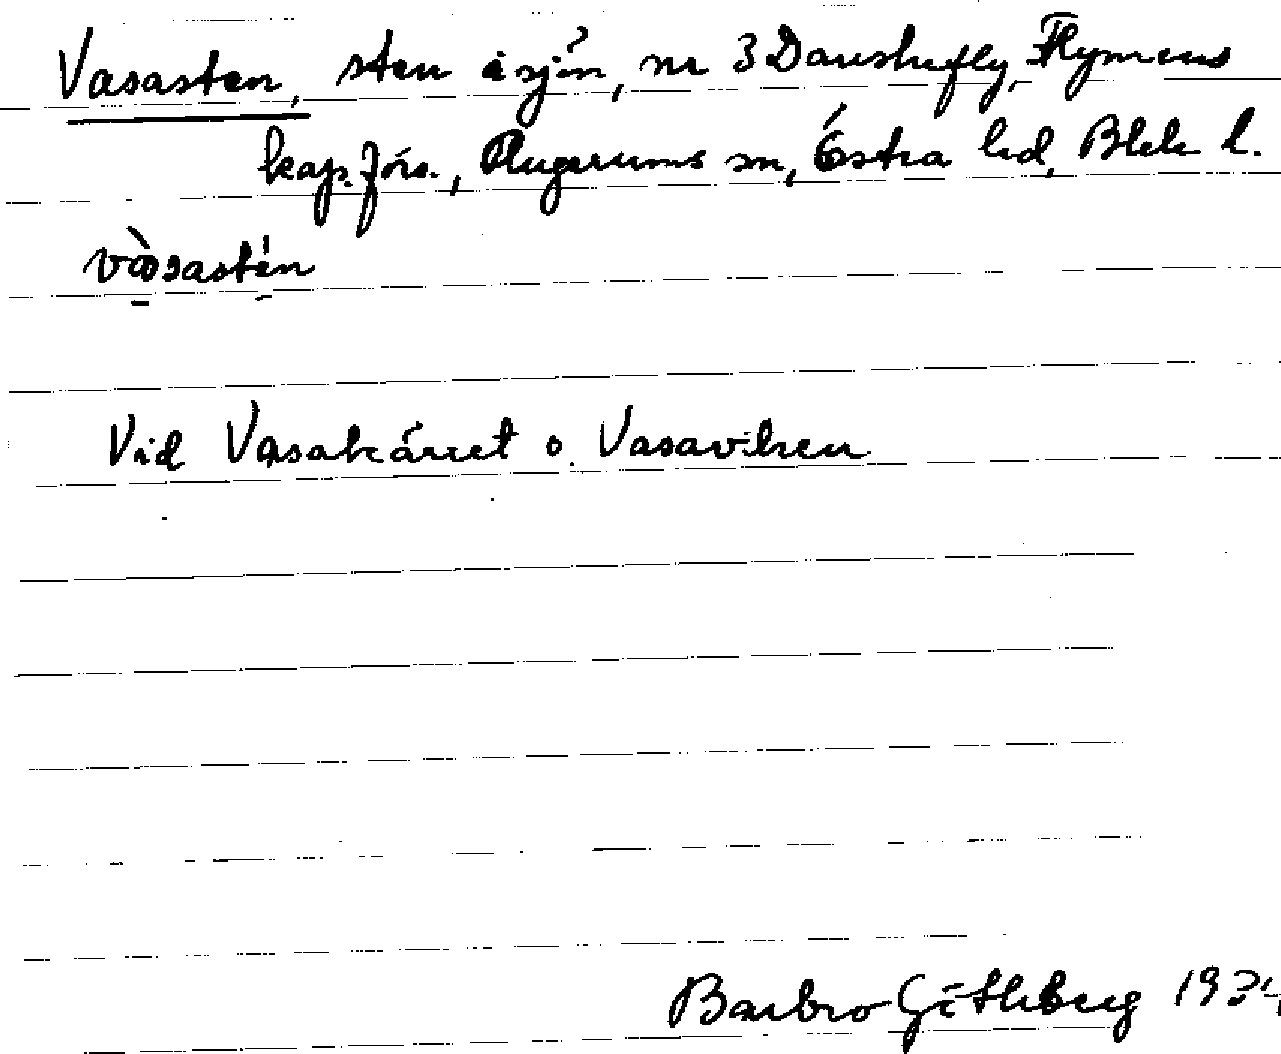 Vasasten, sten i sjön, nr 3 Danskefly, Flymens
kap. förs., Augerums sn, Östra hd, Blek l.
vàsastén
Vid Vasakärret o. Vasaviken
Barbro Götleberg 1934